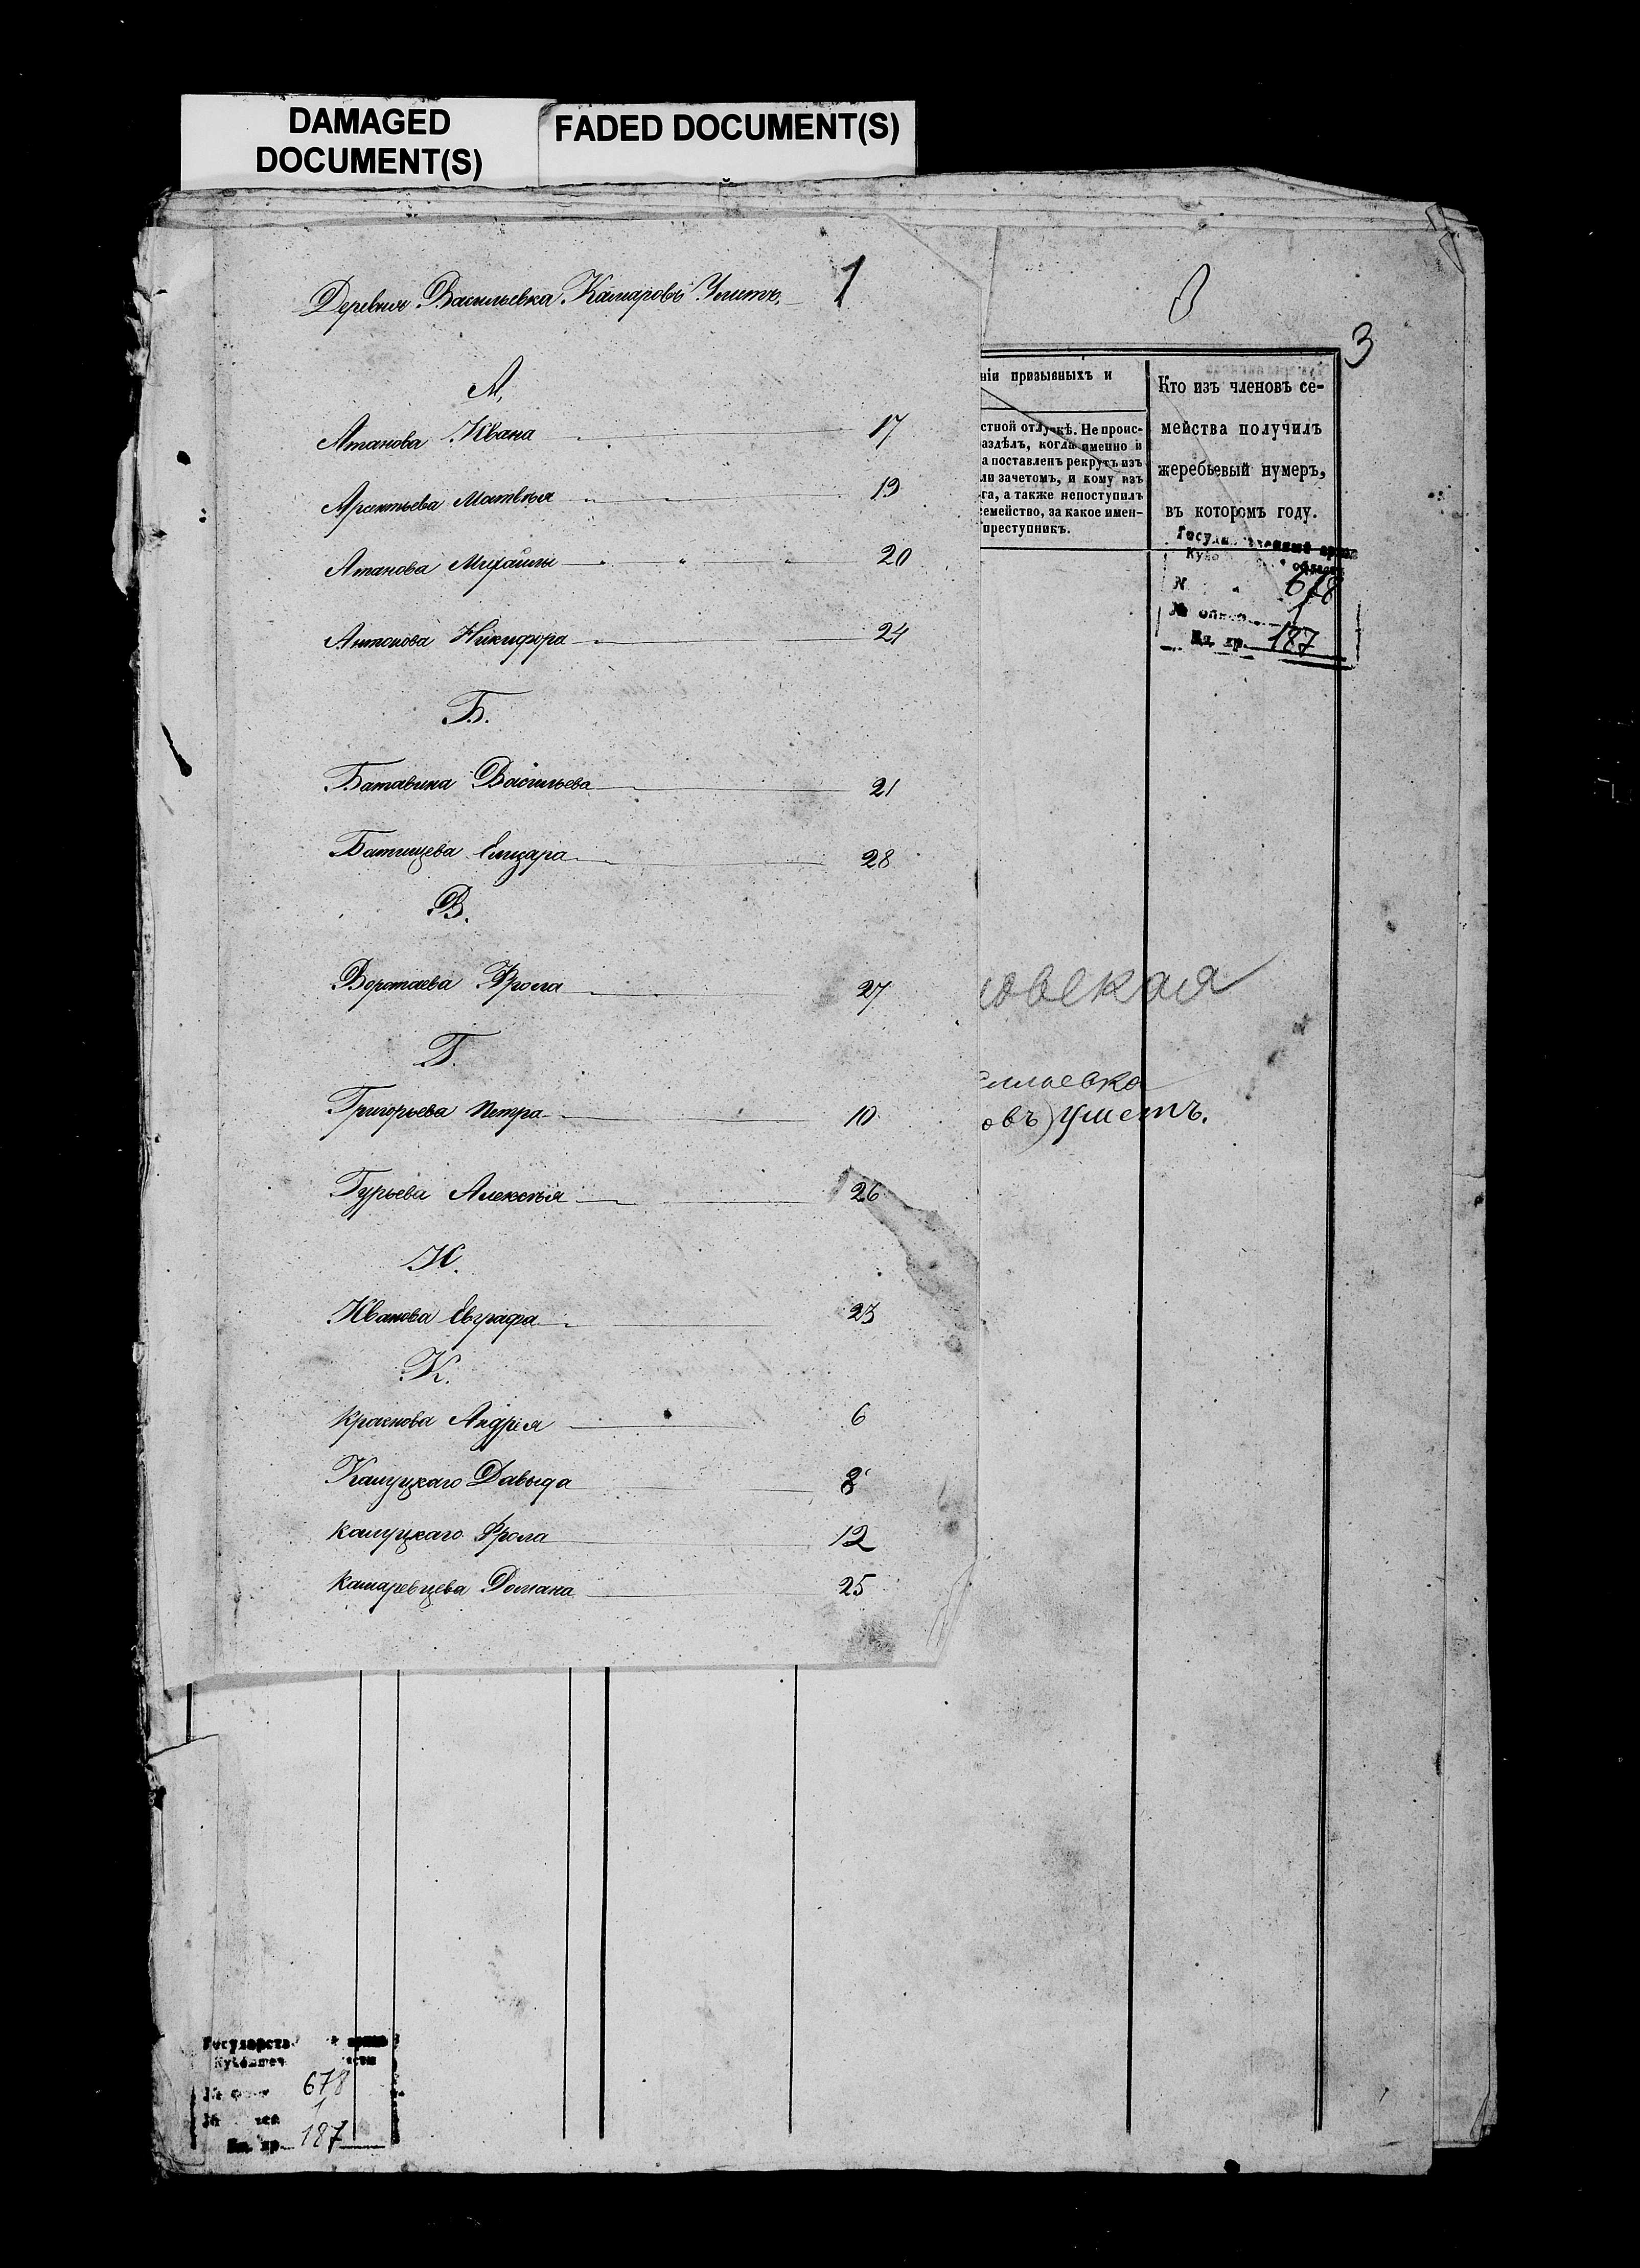 DAMAGED
DOCUMENT(S)
FADED DOCUMENT(S)
Деревня Васильевка Камаровъ Уметъ
1
3
А.
Атанова Ивана 17
Арсентьева Матвѣя 19
Атанова Михайлы 20
Антонова Никифора 24
Б.
Батавина Васильева 21
Батищева Елизара 28
В.
Воротаева Фрола 27
Г.
Григорьева Петра 10
Гурьева Алексѣя 26
И.
Иванова Евграфа 23
К.
Краснова Андрея 6
Калуцкаго Давыда 8
Калуцкаго Фрола 12
Камаревцева Романа 25
ніи призывныхъ и
стной отлучкѣ. Не проис-
аздѣлъ, когда именно и
а поставленъ рекрутъ изъ
ли зачетомъ, и кому изъ
га, а также непоступилъ
емейство, за какое имен-
преступникъ.
Кто изъ членовъ се-
мейства получилъ
жеребьевый нумеръ,
въ которомъ году.
678
1
Ед. хр. 187
овская
овъ) Уметъ.
678
1
Ед. хр. 187